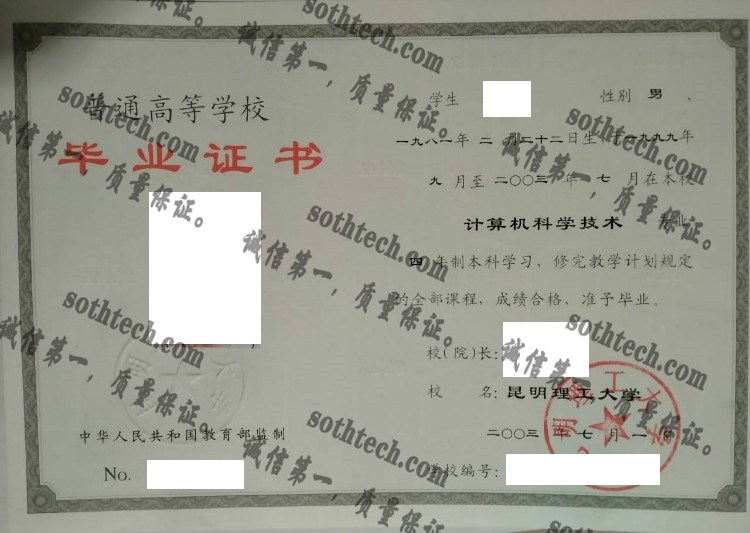 普通高等学校
毕业证书
中华人民共和国教育部监制
No.
学生 性别 男 ,
一九八一年 二 月二十二日生,于一九九九年
九 月至 二〇〇三 年 七 月在本校
计算机科学技术 专业
四 年制本科学习，修完教学计划规定
的全部课程，成绩合格，准予毕业。
校（院）长：
校 名：昆明理工大学
二〇〇三 年 七 月 一 日
学校编号：
sothtech.com
诚信第一，质量保证。
sothtech.com
诚信第一，质量保证。
sothtech.com
诚信第一，质量保证。
sothtech.com
诚信第一，质量保证。
sothtech.com
诚信第一，质量保证。
sothtech.com
诚信第一，质量保证。
sothtech.com
诚信第一，质量保证。
sothtech.com
诚信第一，质量保证。